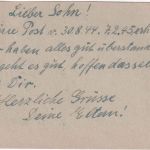 Lieber Sohn!
Post v. 30.8.44. 7.2.45 erh
haben alles gut überstand
geht es gut, hoffen dassel
Dir.
Herzliche Grüsse
Deine Eltern!